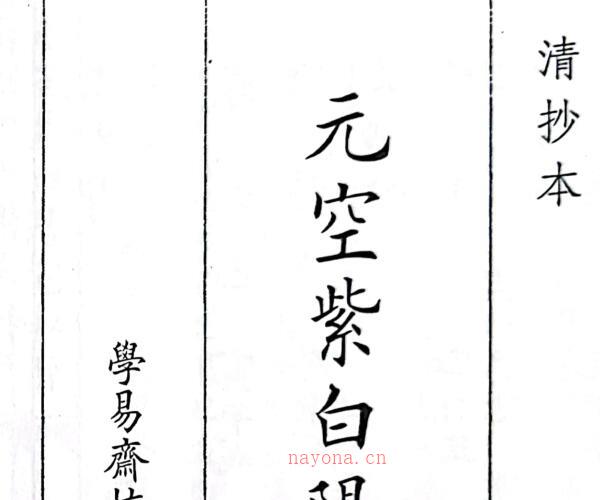 清抄本
元空紫白
學易齋
nayona.cn